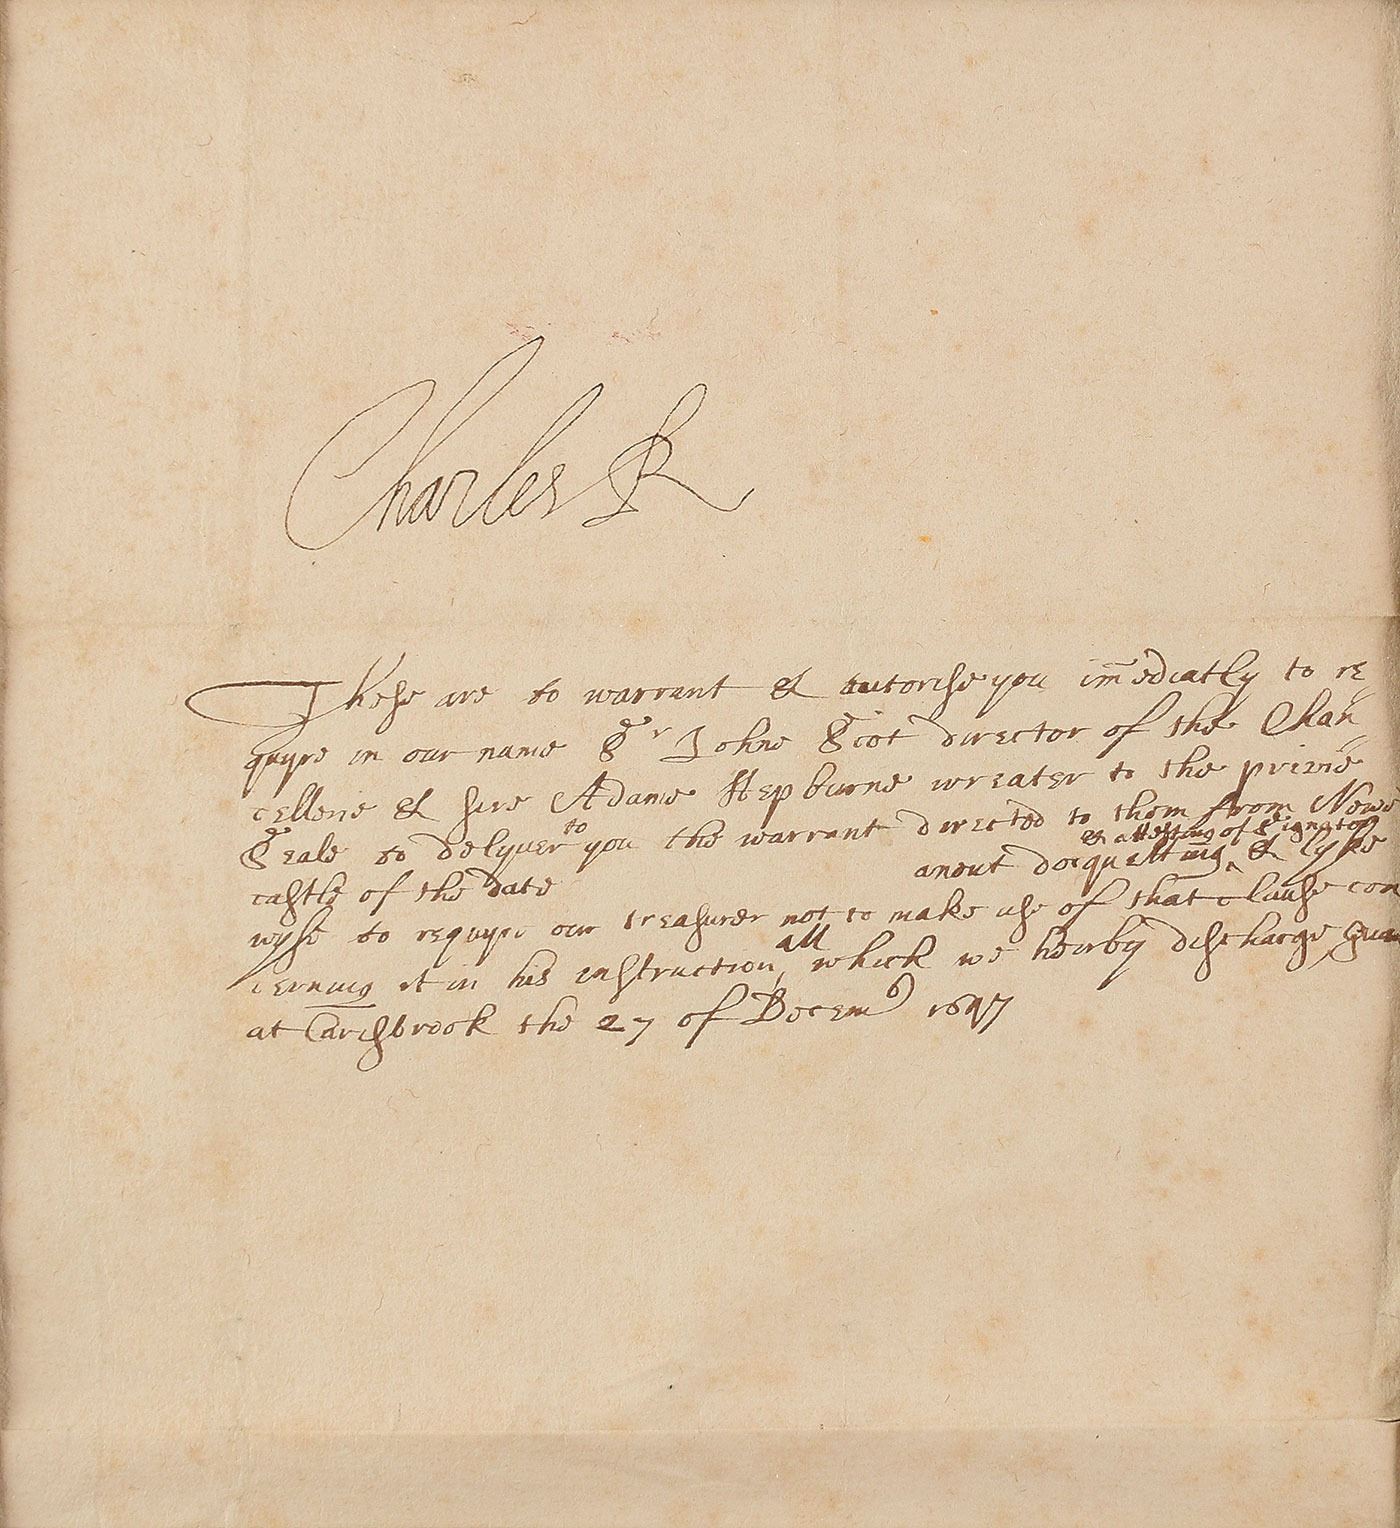 Charles R
These are to warrant & autorise you im̄ediatly to re
quyre in our name Sr Johne Scot director of the Chan
cellerie & sire Adame Hepburne wreater to the privie
Seale to delyver to you the warrant directed to them from New
castle of the date anent docquetting & attesting of Signators & lyke
wyse to requyre our treasurer not to make use of that clause con
cerning it in his instruction, all which we heirby discharge,
at Carisbrook the 27 of Decemb 1647